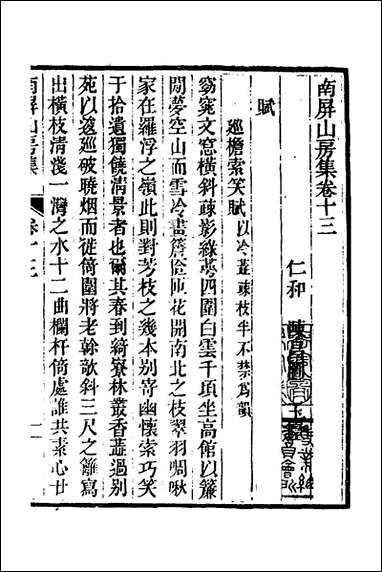 南屏山房集卷十三
仁和 陳昌圖 玉臺
賦
巡檐索笑賦以冷蕊疎枝半不禁為韻
窈窕文窓橫斜疎影綠萼四圍白雲千頃坐高館以簾
閒夢空山而雪冷畫簷俯花開南北之枝翠羽啁啾
家在羅浮之嶺此則對芳枝之幾本別寄幽懷索巧笑
于拾遺獨饒淸景者也爾其春到綺寮林叢香蕋過別
苑以逡廵破曉烟而徙倚圍將老榦欹斜三尺之籬寫
出橫枝淸淺一灣之水十二曲欄杆倚處誰共素心廿
南屏山房集
卷十三
一